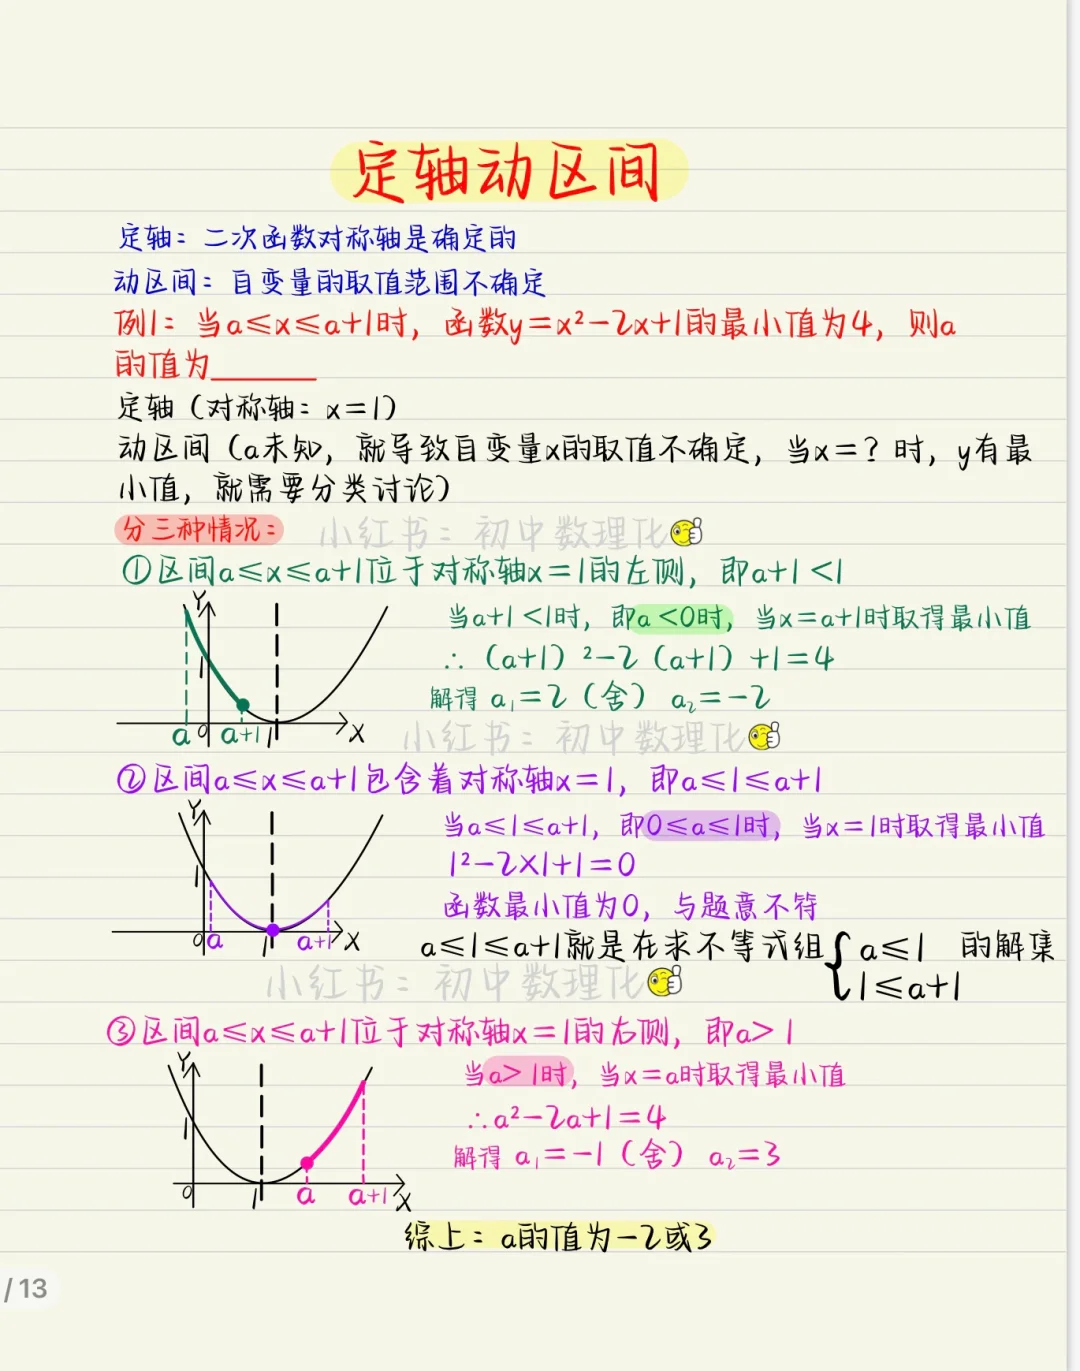 定轴动区间
定轴：二次函数对称轴是确定的
动区间：自变量的取值范围不确定
例1：当a≤x≤a+1时，函数y=x²-2x+1的最小值为4，则a
的值为______
定轴（对称轴：x=1）
动区间（a未知，就导致自变量x的取值不确定，当x=？时，y有最
小值，就需要分类讨论）
分三种情况：
小红书：初中数理化
①区间a≤x≤a+1位于对称轴x=1的左侧，即a+1<1
当a+1<1时，即a<0时，当x=a+1时取得最小值
∴（a+1）²-2（a+1）+1=4
解得 a₁=2（舍） a₂=-2
Y
1
a 0 a+1 1 X
小红书：初中数理化
②区间a≤x≤a+1包含着对称轴x=1，即a≤1≤a+1
当a≤1≤a+1，即0≤a≤1时，当x=1时取得最小值
1²-2×1+1=0
函数最小值为0，与题意不符
Y
1
0 a 1 a+1 X
a≤1≤a+1就是在求不等式组{a≤1 的解集
1≤a+1
小红书：初中数理化
③区间a≤x≤a+1位于对称轴x=1的右侧，即a>1
当a>1时，当x=a时取得最小值
∴a²-2a+1=4
解得 a₁=-1（舍） a₂=3
Y
1
0 1 a a+1 X
综上：a的值为-2或3
/13